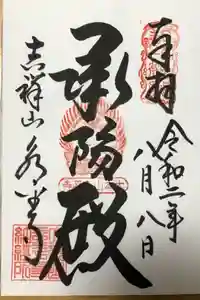 奉拝
令和二年
八月八日
承陽殿
吉祥山永平寺